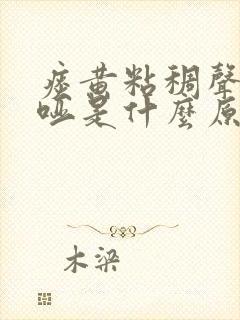 痰黄粘稠聲
哑是什麽原
木梁